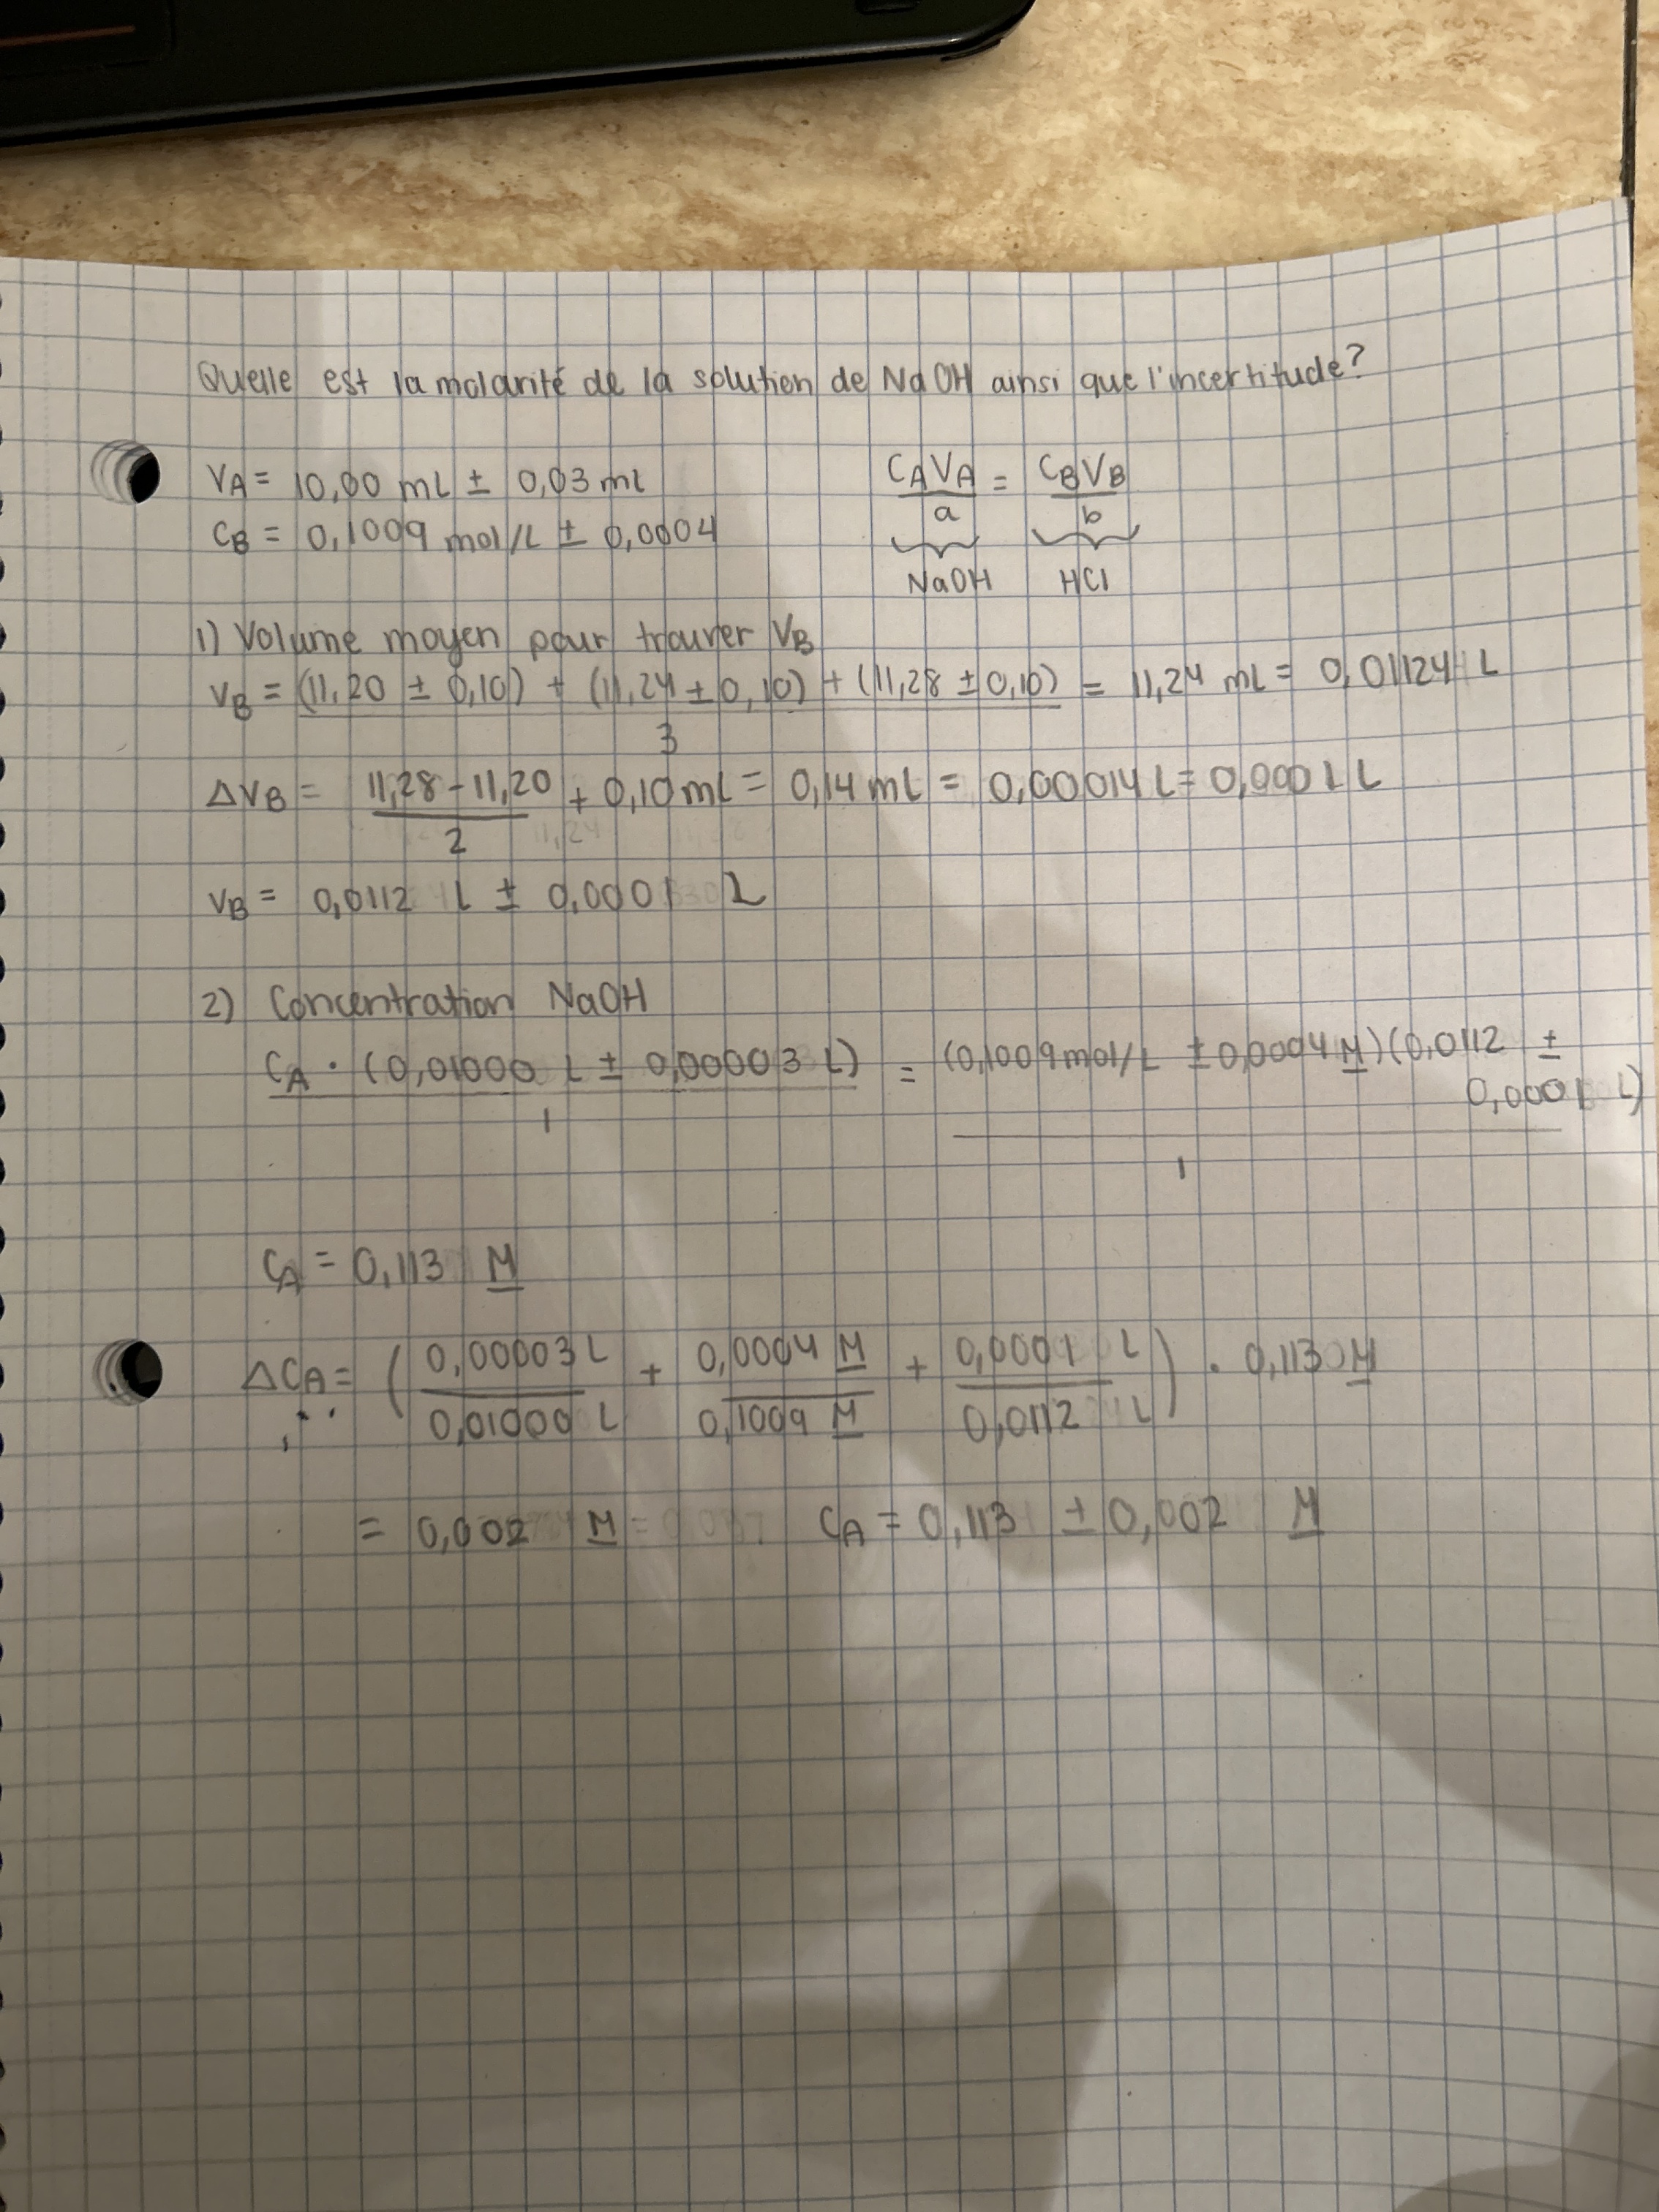 Quelle est la molarité de la solution de NaOH ainsi que l'incertitude?
VA = 10,00 mL ± 0,03 mL
CB = 0,1009 mol/L ± 0,0004
CAVA / a = CBVB / b
NaOH HCl
1) Volume moyen pour trouver VB
VB = (11,20 ± 0,10) + (11,24 ± 0,10) + (11,28 ± 0,10) / 3 = 11,24 mL = 0,01124 L
ΔVB = 11,28 - 11,20 / 2 + 0,10 mL = 0,14 mL = 0,00014 L = 0,0001 L
VB = 0,0112 L ± 0,0001 L
2) Concentration NaOH
CA · (0,01000 L ± 0,00003 L) / 1 = (0,1009 mol/L ± 0,0004 M)(0,0112 ± 0,0001 L) / 1
CA = 0,113 M
ΔCA = (0,00003 L / 0,01000 L + 0,0004 M / 0,1009 M + 0,0001 L / 0,0112 L) · 0,113 M
= 0,002 M CA = 0,113 ± 0,002 M